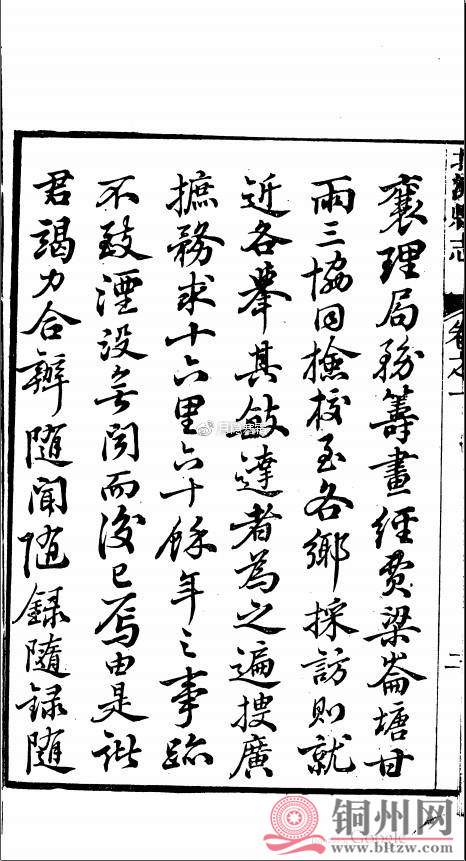 北流縣志
卷之一
二
襄理局務籌畫經費梁崙塘甘
雨三協同撿校至各鄉採訪則就
近各舉其敏達者為之遍搜廣
摭務求十六里六十餘年之事跡
不致湮沒無聞而後已焉由是諸
君竭力合辦隨聞隨錄隨錄隨
铜州网
Google
www.bltzw.com